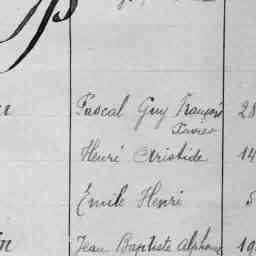 Pascal Guy François 28
Xavier
Henri Aristide 14
Émile Henri 5
Jean Baptiste Alphonse 19